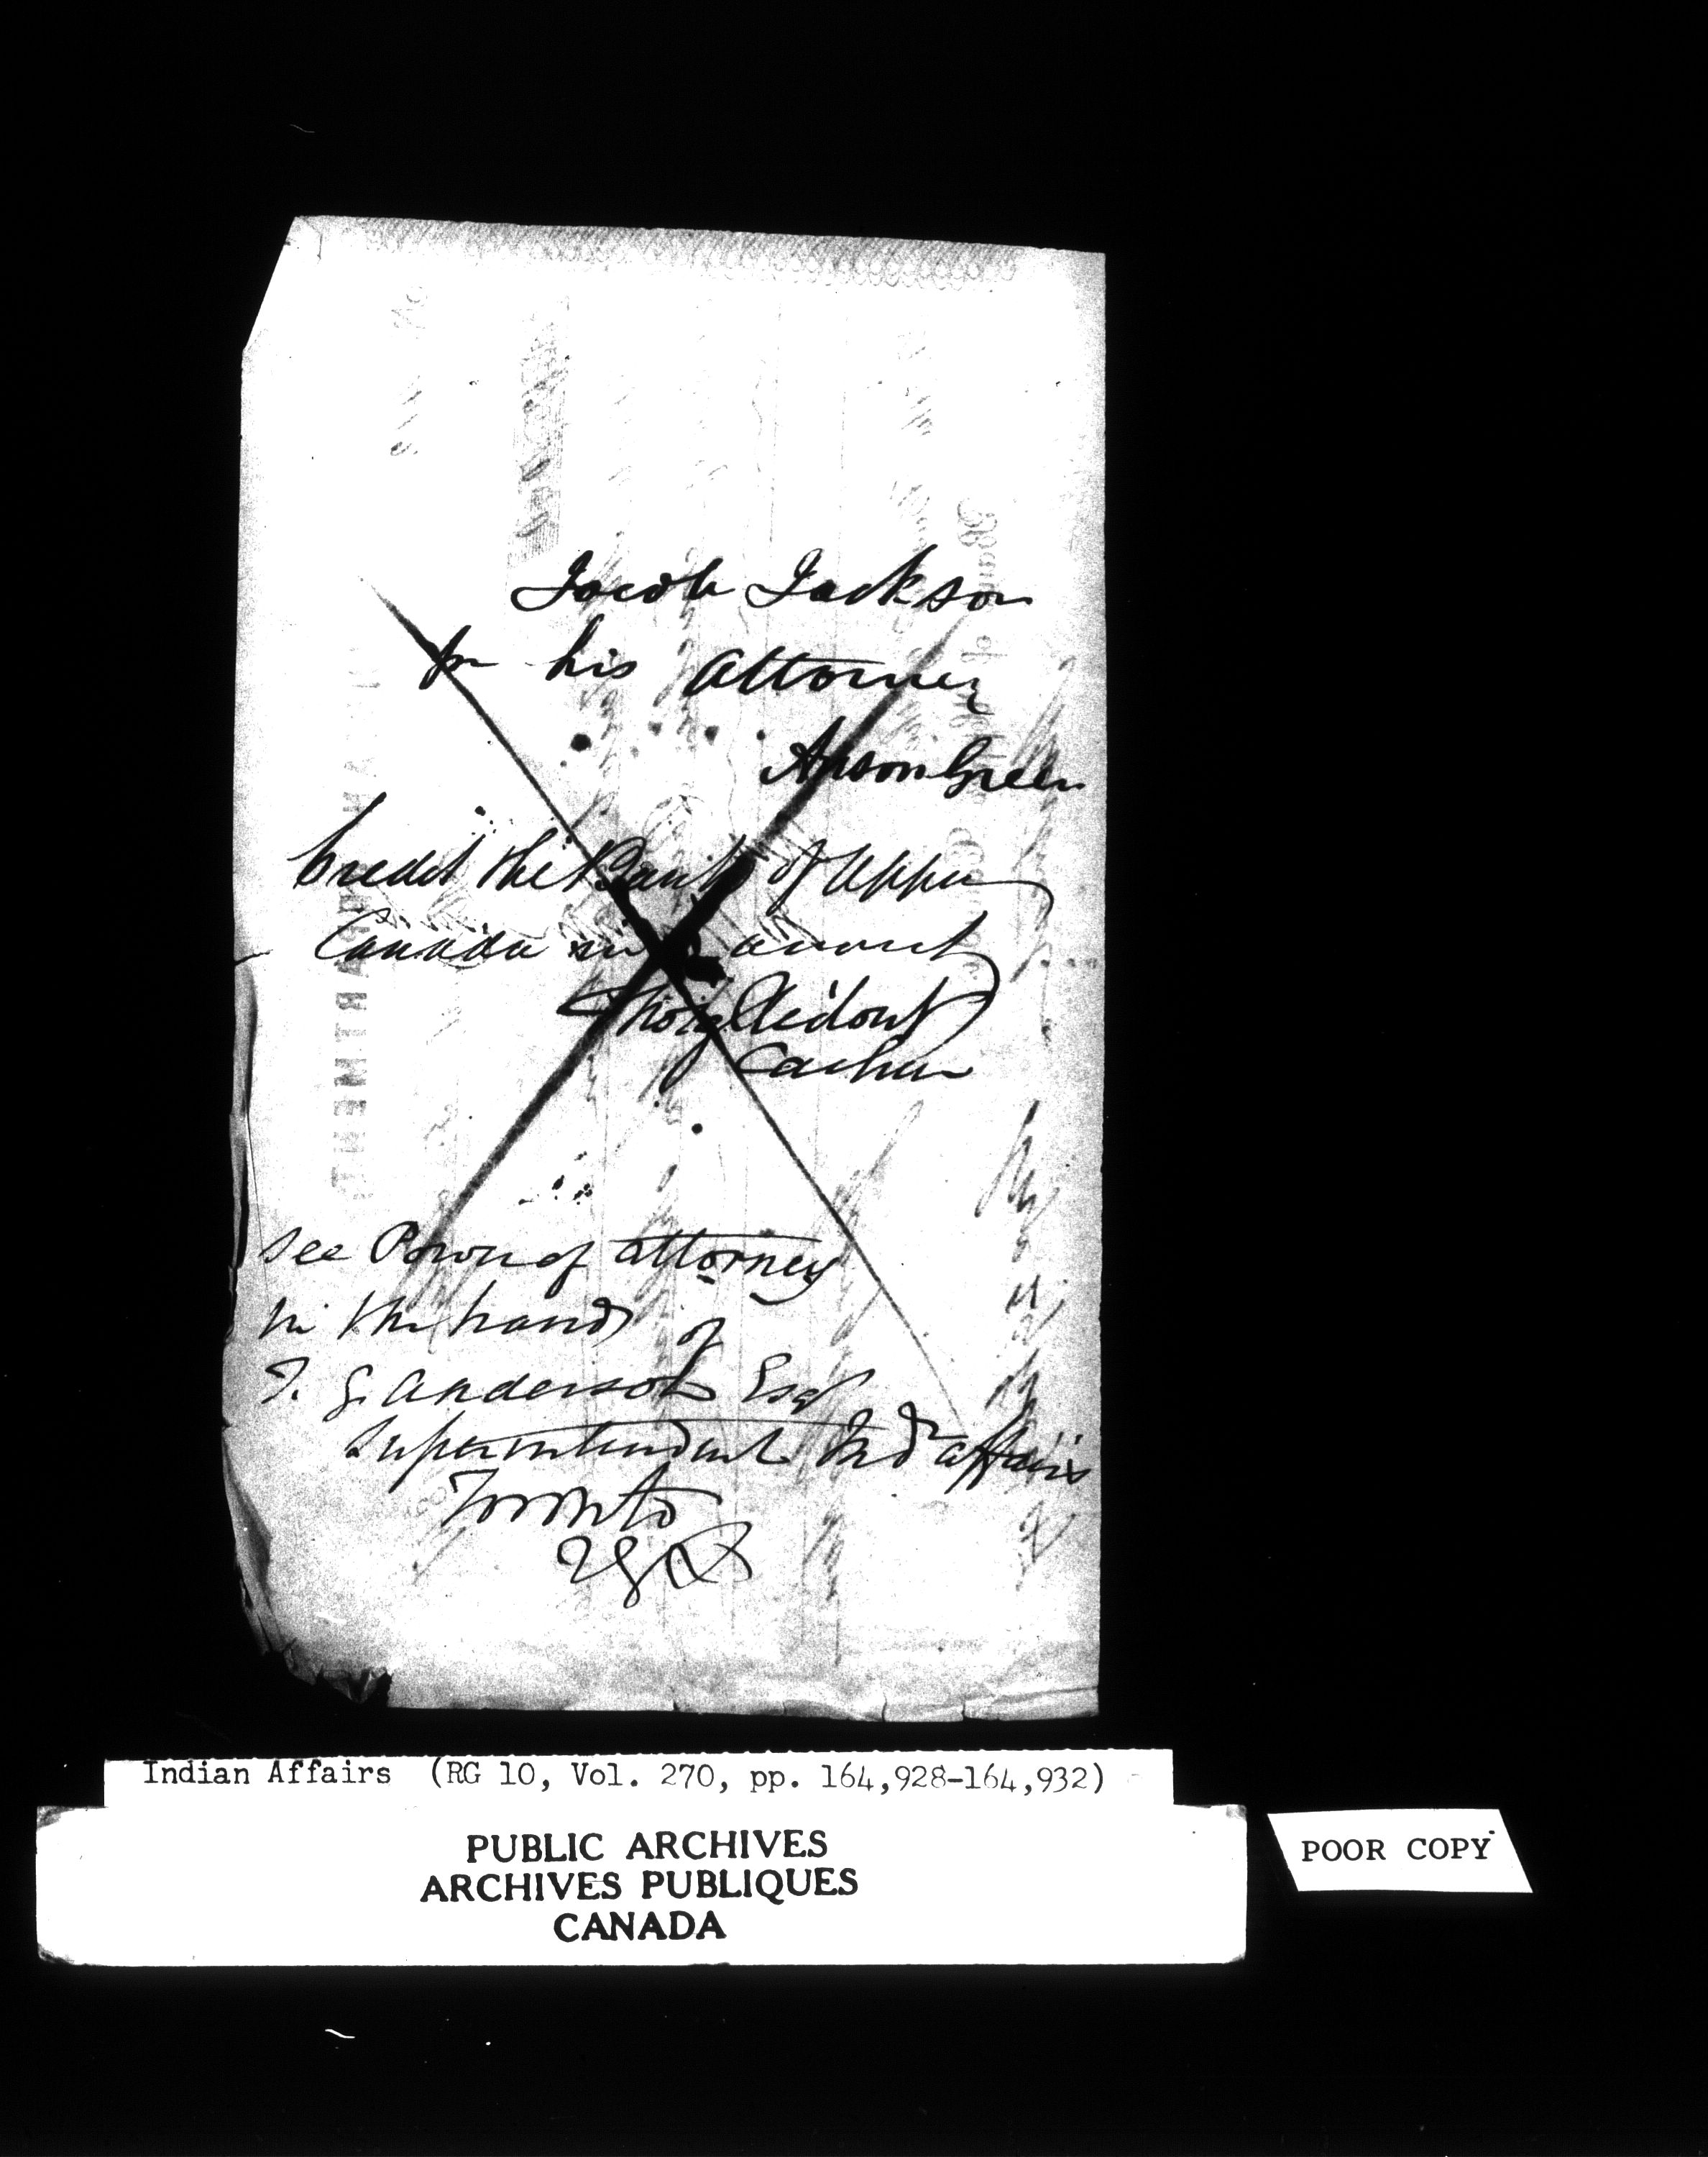 Jacob Jackson
pr his attorney
Anson Green
Credit the Bank of Upper
Canada in account
Thos G Ridout
Cashier
See Power of attorney
in the hands of
T. G. Anderson Esqr
Superintendent Indn affairs
Toronto
Indian Affairs (RG 10, Vol. 270, pp. 164,928-164,932)
PUBLIC ARCHIVES
ARCHIVES PUBLIQUES
CANADA
POOR COPY